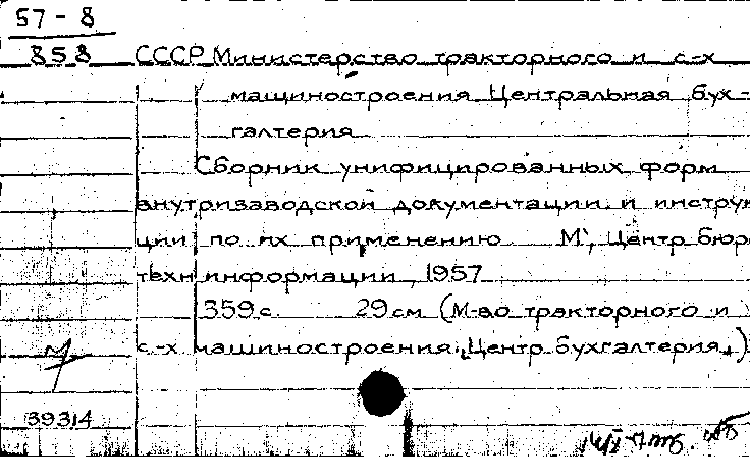 57-8
858
СССР Министерство тракторного и с-х
машиностроения. Центральная бух-
галтерия
Сборник унифицированных форм
внутризаводской документации и инструк
ции по их применению М, Центр бюро
техн информации, 1957
359с. 29см (М-во тракторного и
с.-х машиностроения. Центр бухгалтерия.)
39314